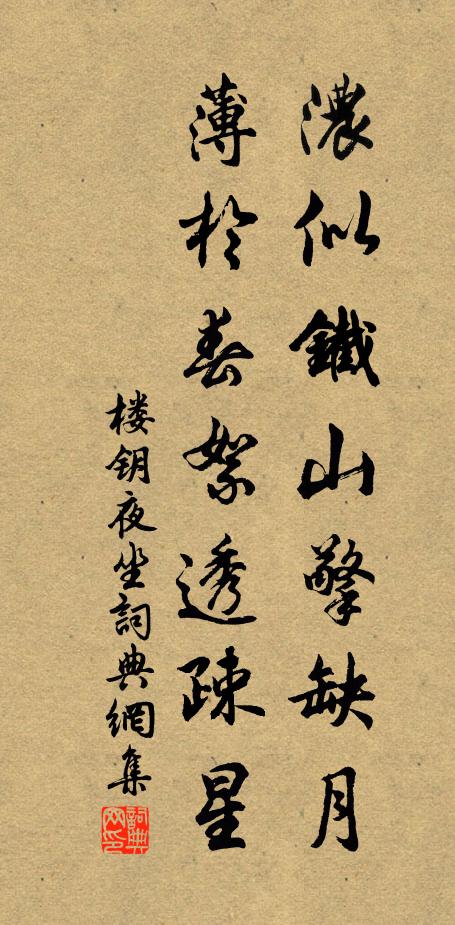 濃似鐵山擎缺月
薄於春絮透疎星
楼钥夜坐詞典網集
詞典網印